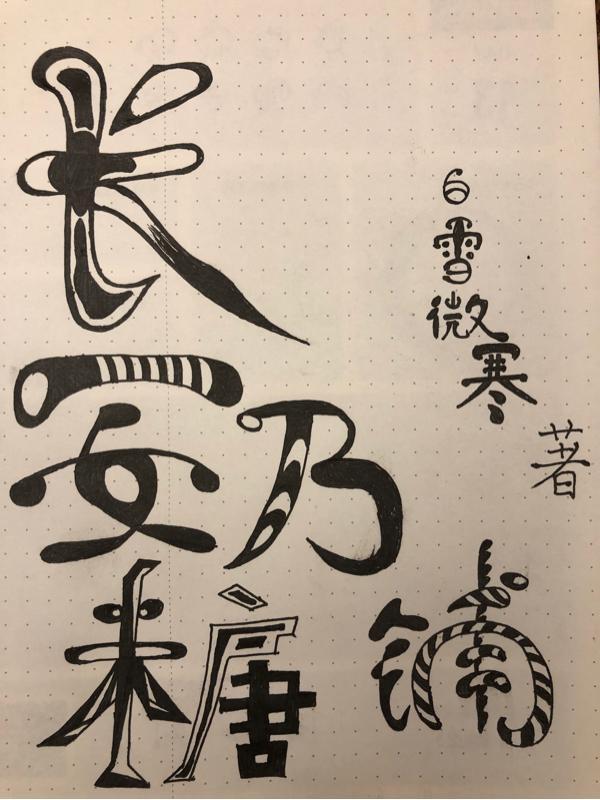 长
安乃
糖
白雪微寒
著